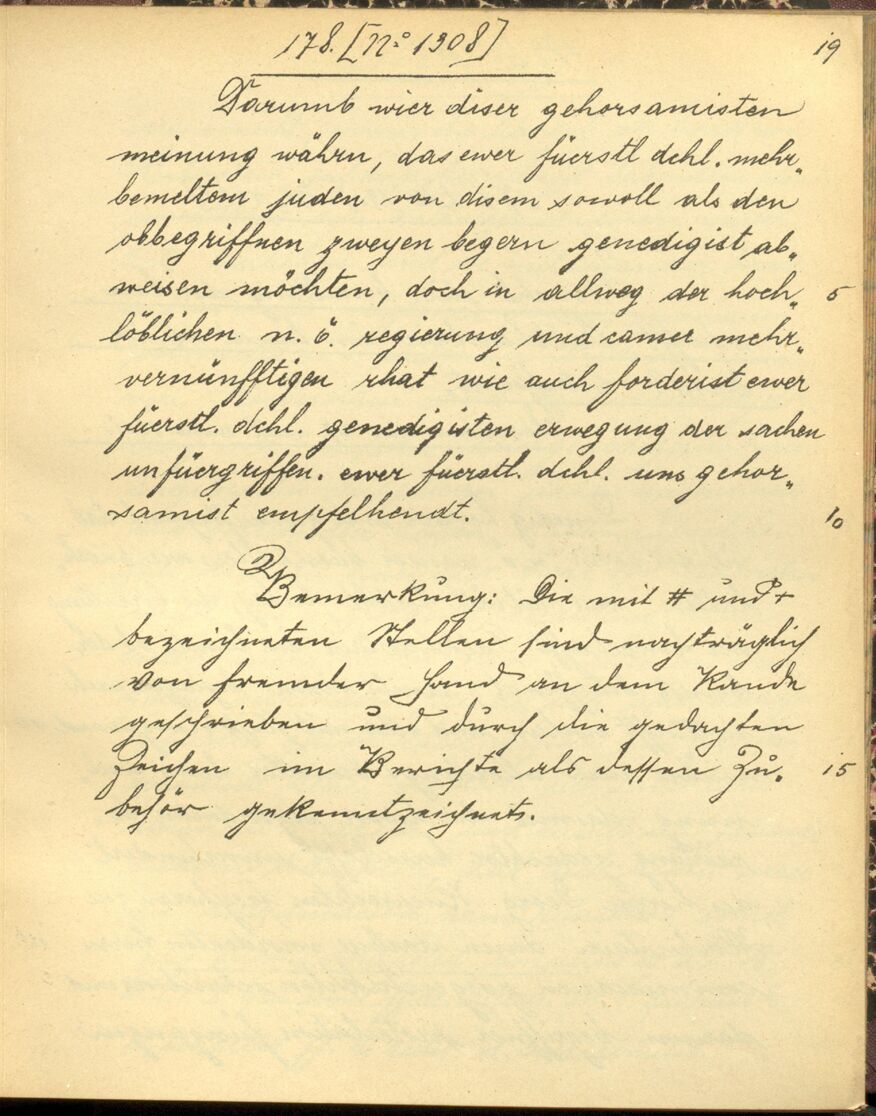 178. [No 1308]
19
Darumb wier diser gehorsamisten
meinung währn, das ewer füerstl dchl. mehr„
bemeltem juden von disem sowoll als den
obbegriffnen zweyen begern genedigist ab„
weisen möchten, doch in allweg der hoch„ 5
löblichen n. ö. regierung und camer mehr„
vernünfftigen rhat wie auch forderist ewer
füerstl. dchl. genedigisten erwegung der sachen
unfüergriffen. ewer füerstl. dchl. uns gehor„
samist empfelhendt. 10
Bemerkung: Die mit # und +
bezeichneten Stellen sind nachträglich
von fremder Hand an dem Rande
geschrieben und durch die gedachten
Zeichen im Berichte als dessen Zu„ 15
behör gekennzeichnet.